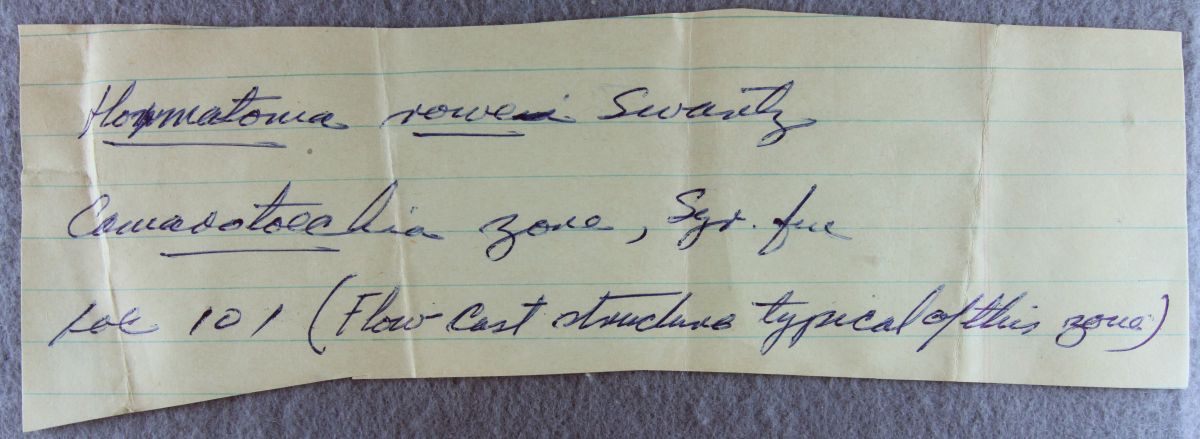 Hormatoma rowei Swartz
Camarotoechia zone, Syr. fm
loc 101 (Flow Cast structure typical of this zone)